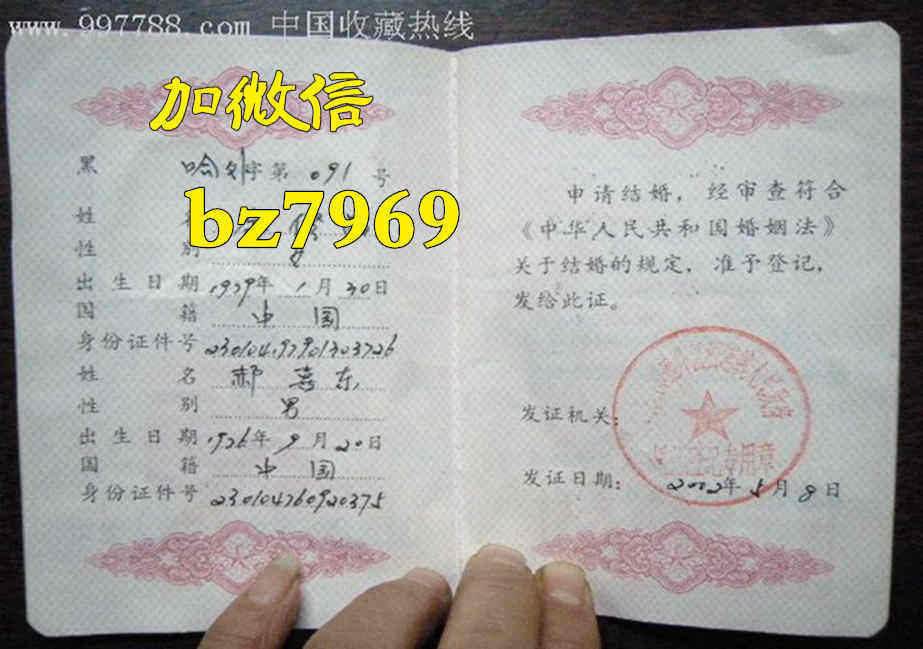 www.997788.com 中国收藏热线
加微信
黑 哈外字第 091 号
bz7969
姓
性 别 女
出生日期 1979年 1月30日
国 籍 中国
身份证件号 230104197901303726
姓 名 郝嘉东
性 别 男
出生日期 1976年 9月20日
国 籍 中国
身份证件号 230104760920375
申请结婚，经审查符合
《中华人民共和国婚姻法》
关于结婚的规定，准予登记，
发给此证。
发证机关：
专用章
发证日期： 2002年5月8日